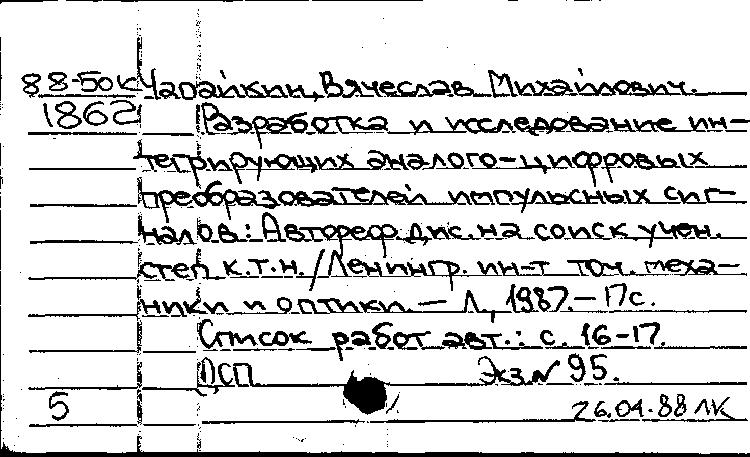 88-50к Чарайкин, Вячеслав Михайлович.
1862 Разработка и исследование ин-
тегрирующих аналого-цифровых
преобразователей импульсных сиг-
налов: Автореф. дис. на соиск. учен.
степ. к.т.н. / Ленингр. ин-т точ. меха-
ники и оптики. — Л., 1987. — 17 с.
Список работ авт.: с. 16-17.
ДСП Экз. № 95.
5 26.04.88 ЛК